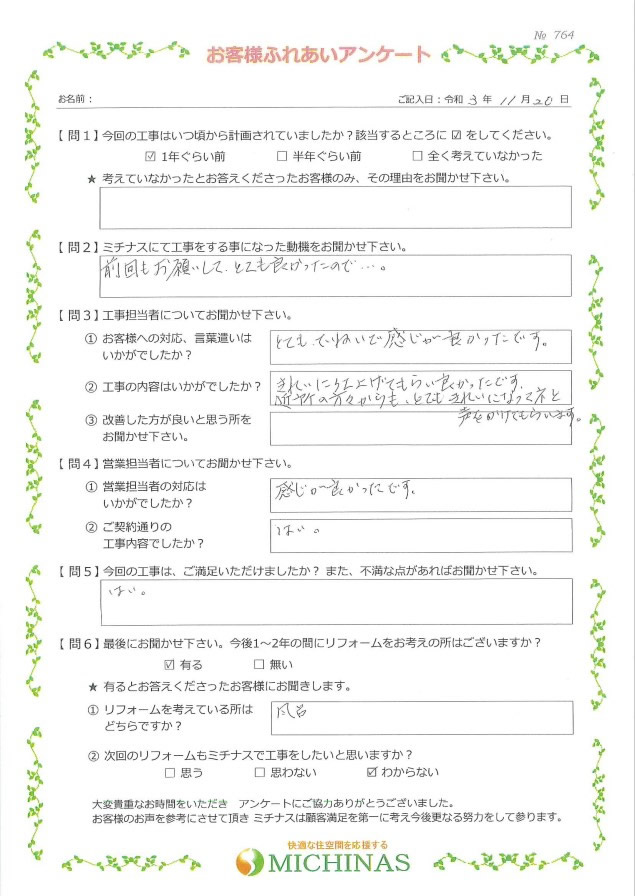 № 764
お客様ふれあいアンケート
お名前： ご記入日：令和 3 年 11 月 20 日
【問１】今回の工事はいつ頃から計画されていましたか？該当するところに ☑ をしてください。
☑ 1年ぐらい前 ☐ 半年ぐらい前 ☐ 全く考えていなかった
★ 考えていなかったとお答えくださったお客様のみ、その理由をお聞かせ下さい。
【問２】ミチナスにて工事をする事になった動機をお聞かせ下さい。
前回もお願いして、とても良かったので…。
【問３】工事担当者についてお聞かせ下さい。
① お客様への対応、言葉遣いは
いかがでしたか？
とても、ていねいで感じが良かったです。
② 工事の内容はいかがでしたか？
きれいに仕上げてもらい良かったです。
近所の方々からも、とてもきれいになってネと
声をかけてもらいます。
③ 改善した方が良いと思う所を
お聞かせ下さい。
【問４】営業担当者についてお聞かせ下さい。
① 営業担当者の対応は
いかがでしたか？
感じが良かったです。
② ご契約通りの
工事内容でしたか？
はい。
【問５】今回の工事は、ご満足いただけましたか？ また、不満な点があればお聞かせ下さい。
はい。
【問６】最後にお聞かせ下さい。今後1～2年の間にリフォームをお考えの所はございますか？
☑ 有る ☐ 無い
★ 有るとお答えくださったお客様にお聞きします。
① リフォームを考えている所は
どちらですか？
風呂
② 次回のリフォームもミチナスで工事をしたいと思いますか？
☐ 思う ☐ 思わない ☑ わからない
大変貴重なお時間をいただき アンケートにご協力ありがとうございました。
お客様のお声を参考にさせて頂き ミチナスは顧客満足を第一に考え今後更なる努力をして参ります。
快適な住空間を応援する
MICHINAS